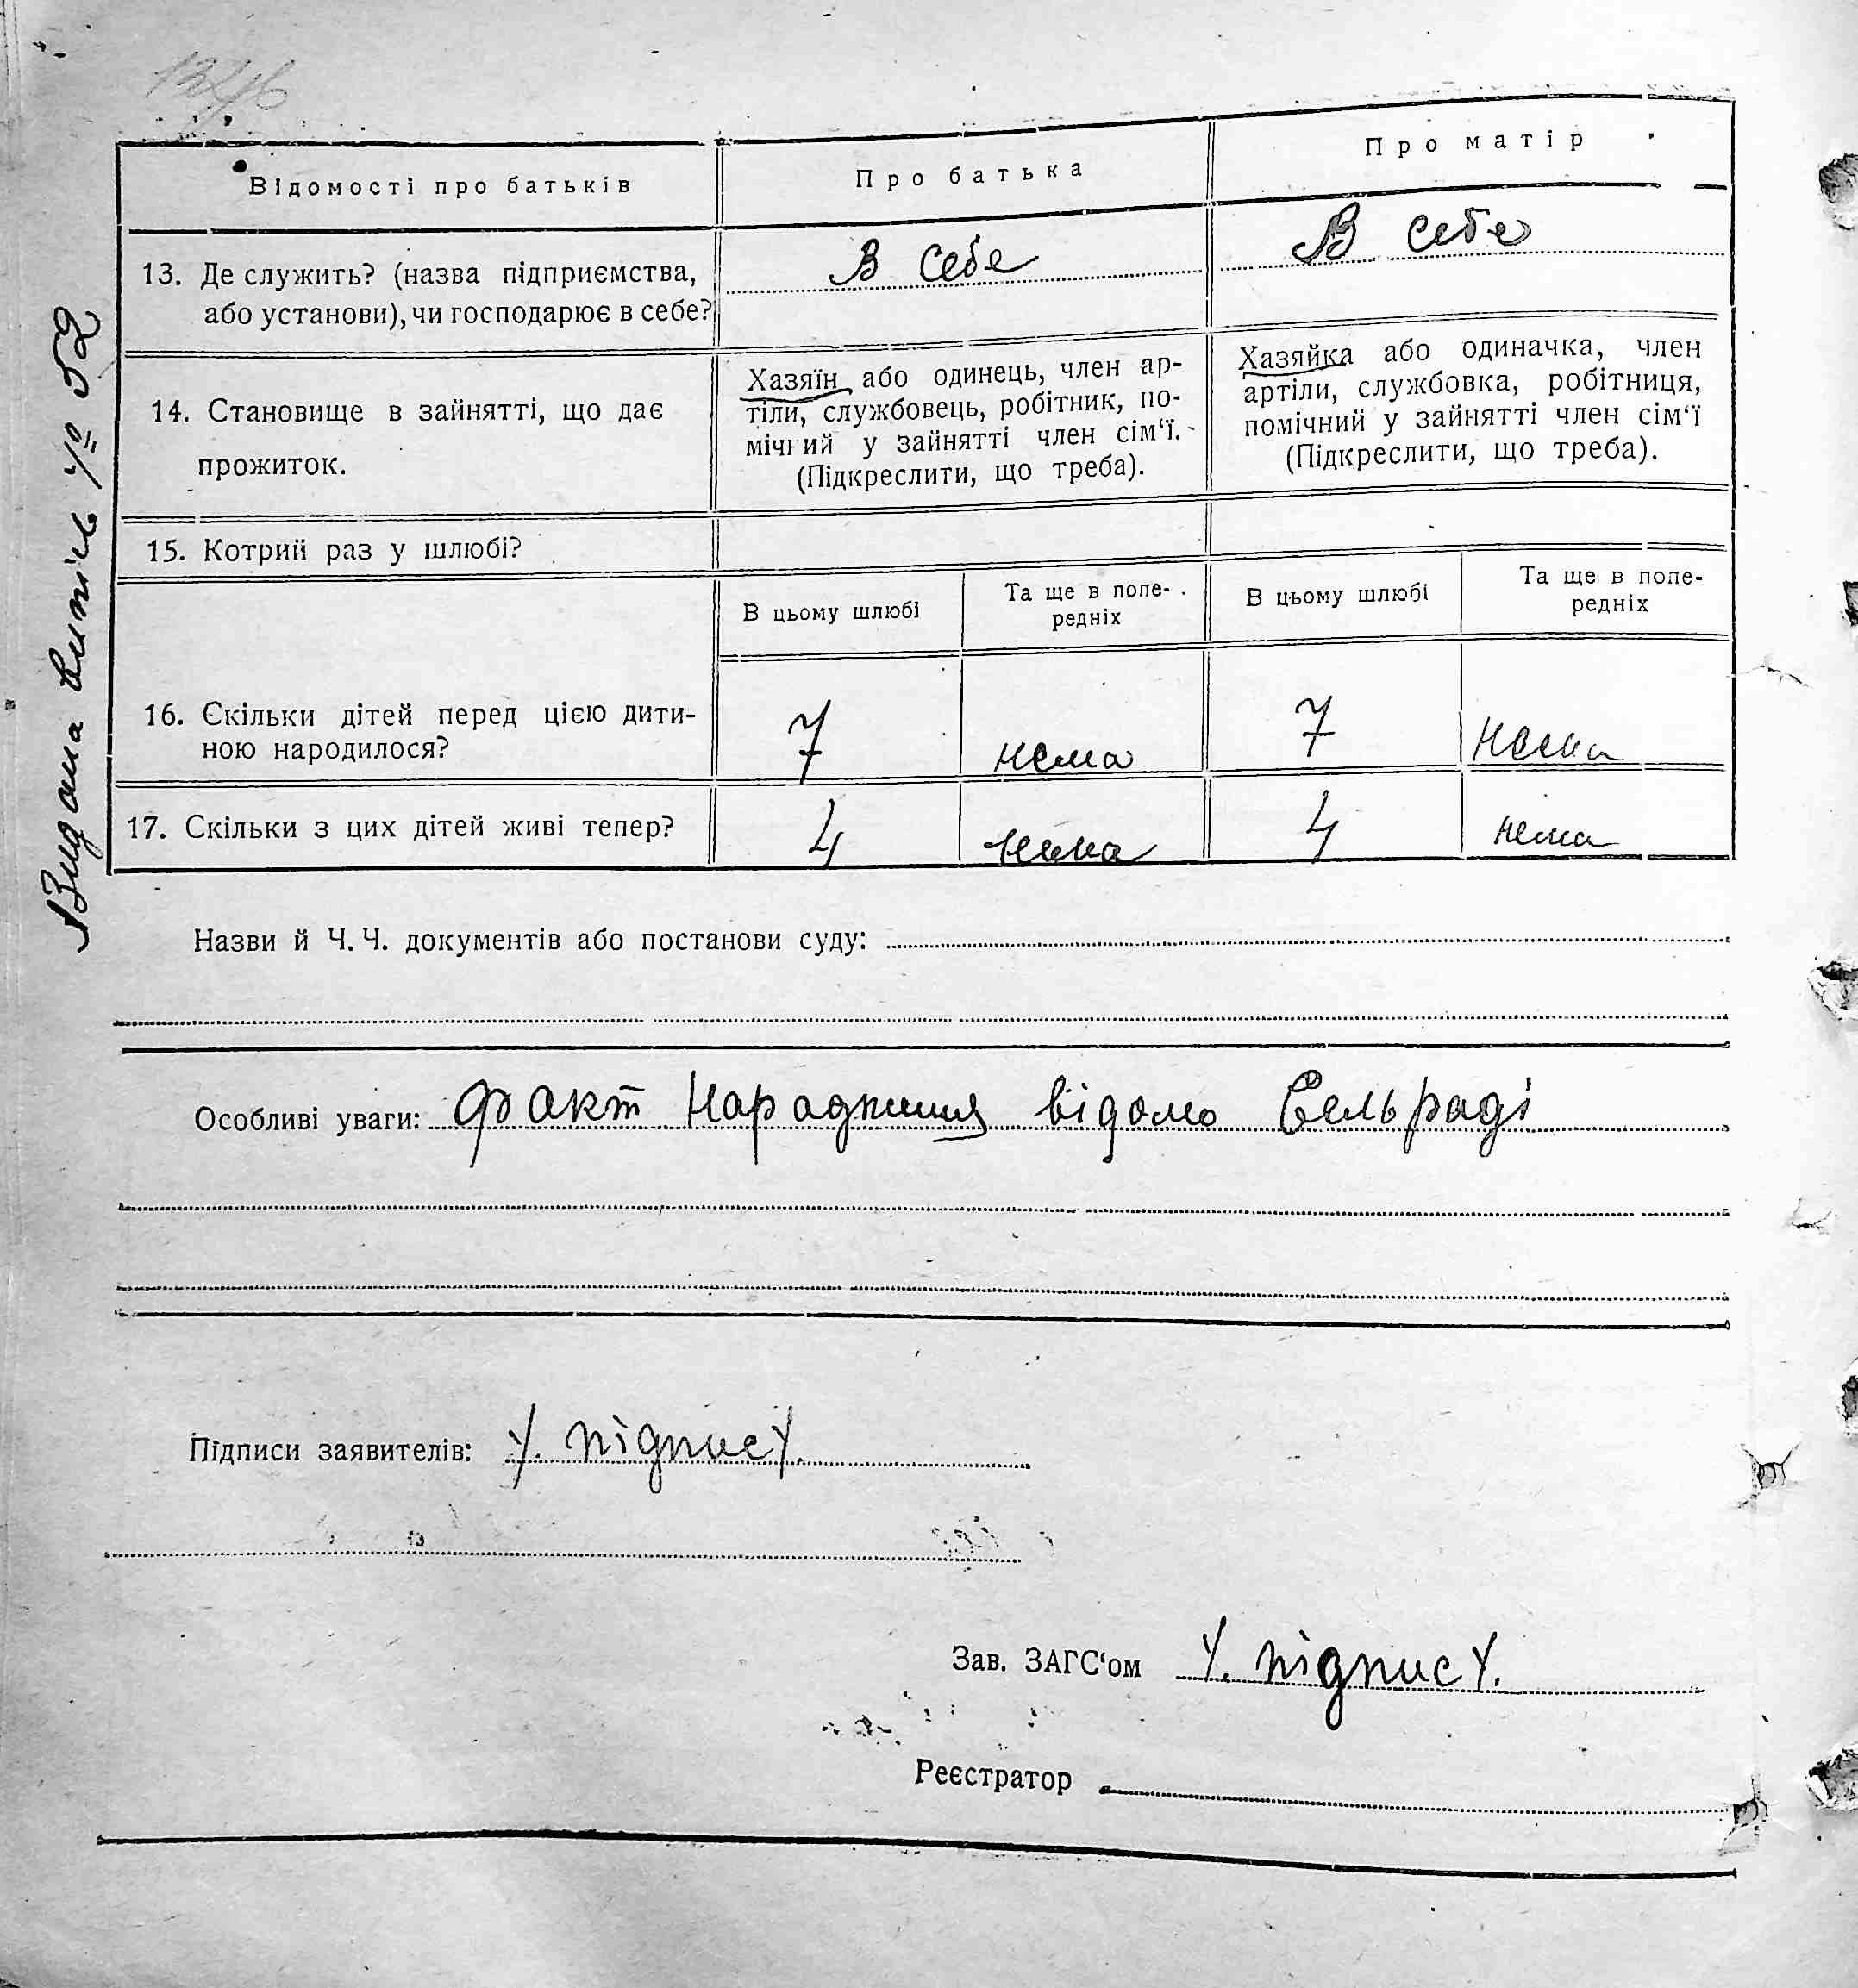 Відомості про батьків
Про батька
Про матір
13. Де служить? (назва підприємства,
або установи), чи господарює в себе?
В себе
В себе
14. Становище в зайнятті, що дає
прожиток.
Хазяїн або одинець, член ар-
тіли, службовець, робітник, по-
мічний у зайнятті член сім‘ї.
(Підкреслити, що треба).
Хазяйка або одиначка, член
артіли, службовка, робітниця,
помічний у зайнятті член сім‘ї
(Підкреслити, що треба).
15. Котрий раз у шлюбі?
В цьому шлюбі
Та ще в попе-
редніх
В цьому шлюбі
Та ще в попе-
редніх
16. Скільки дітей перед цією дити-
ною народилося?
7
нема
7
нема
17. Скільки з цих дітей живі тепер?
4
нема
4
нема
Видана витіль № 52
Назви й Ч. Ч. документів або постанови суду:
Особливі уваги: Факт Народження відомо Сельраді
Підписи заявителів: /. підпис /.
Зав. ЗАГС‘ом /. підпис /.
Реєстратор